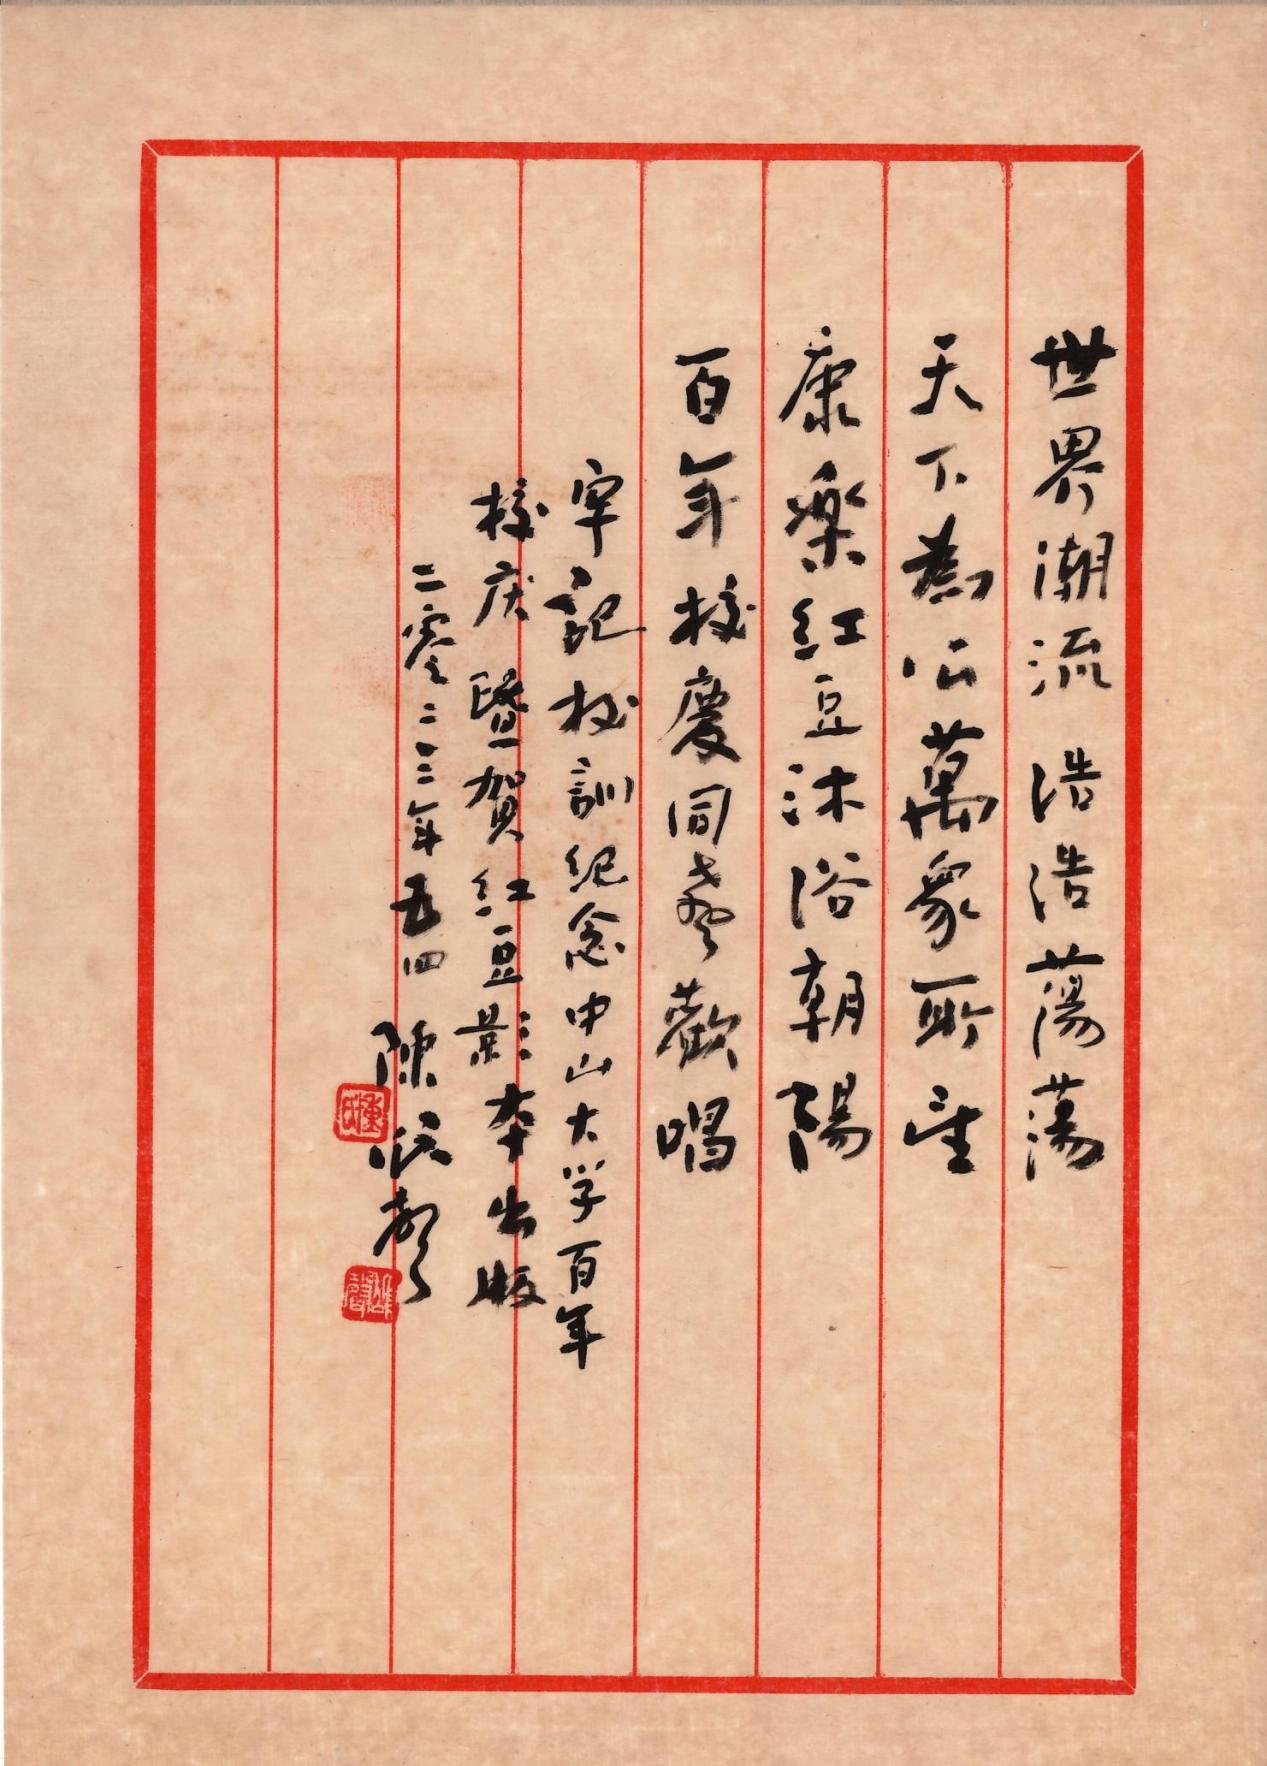 世界潮流 浩浩蕩蕩
天下為公萬衆所望
康樂紅豆沐浴朝陽
百年校慶同聲歡唱
牢記校訓紀念中山大学百年
校庆暨賀紅豆影本出版
二零二三年五四 陳